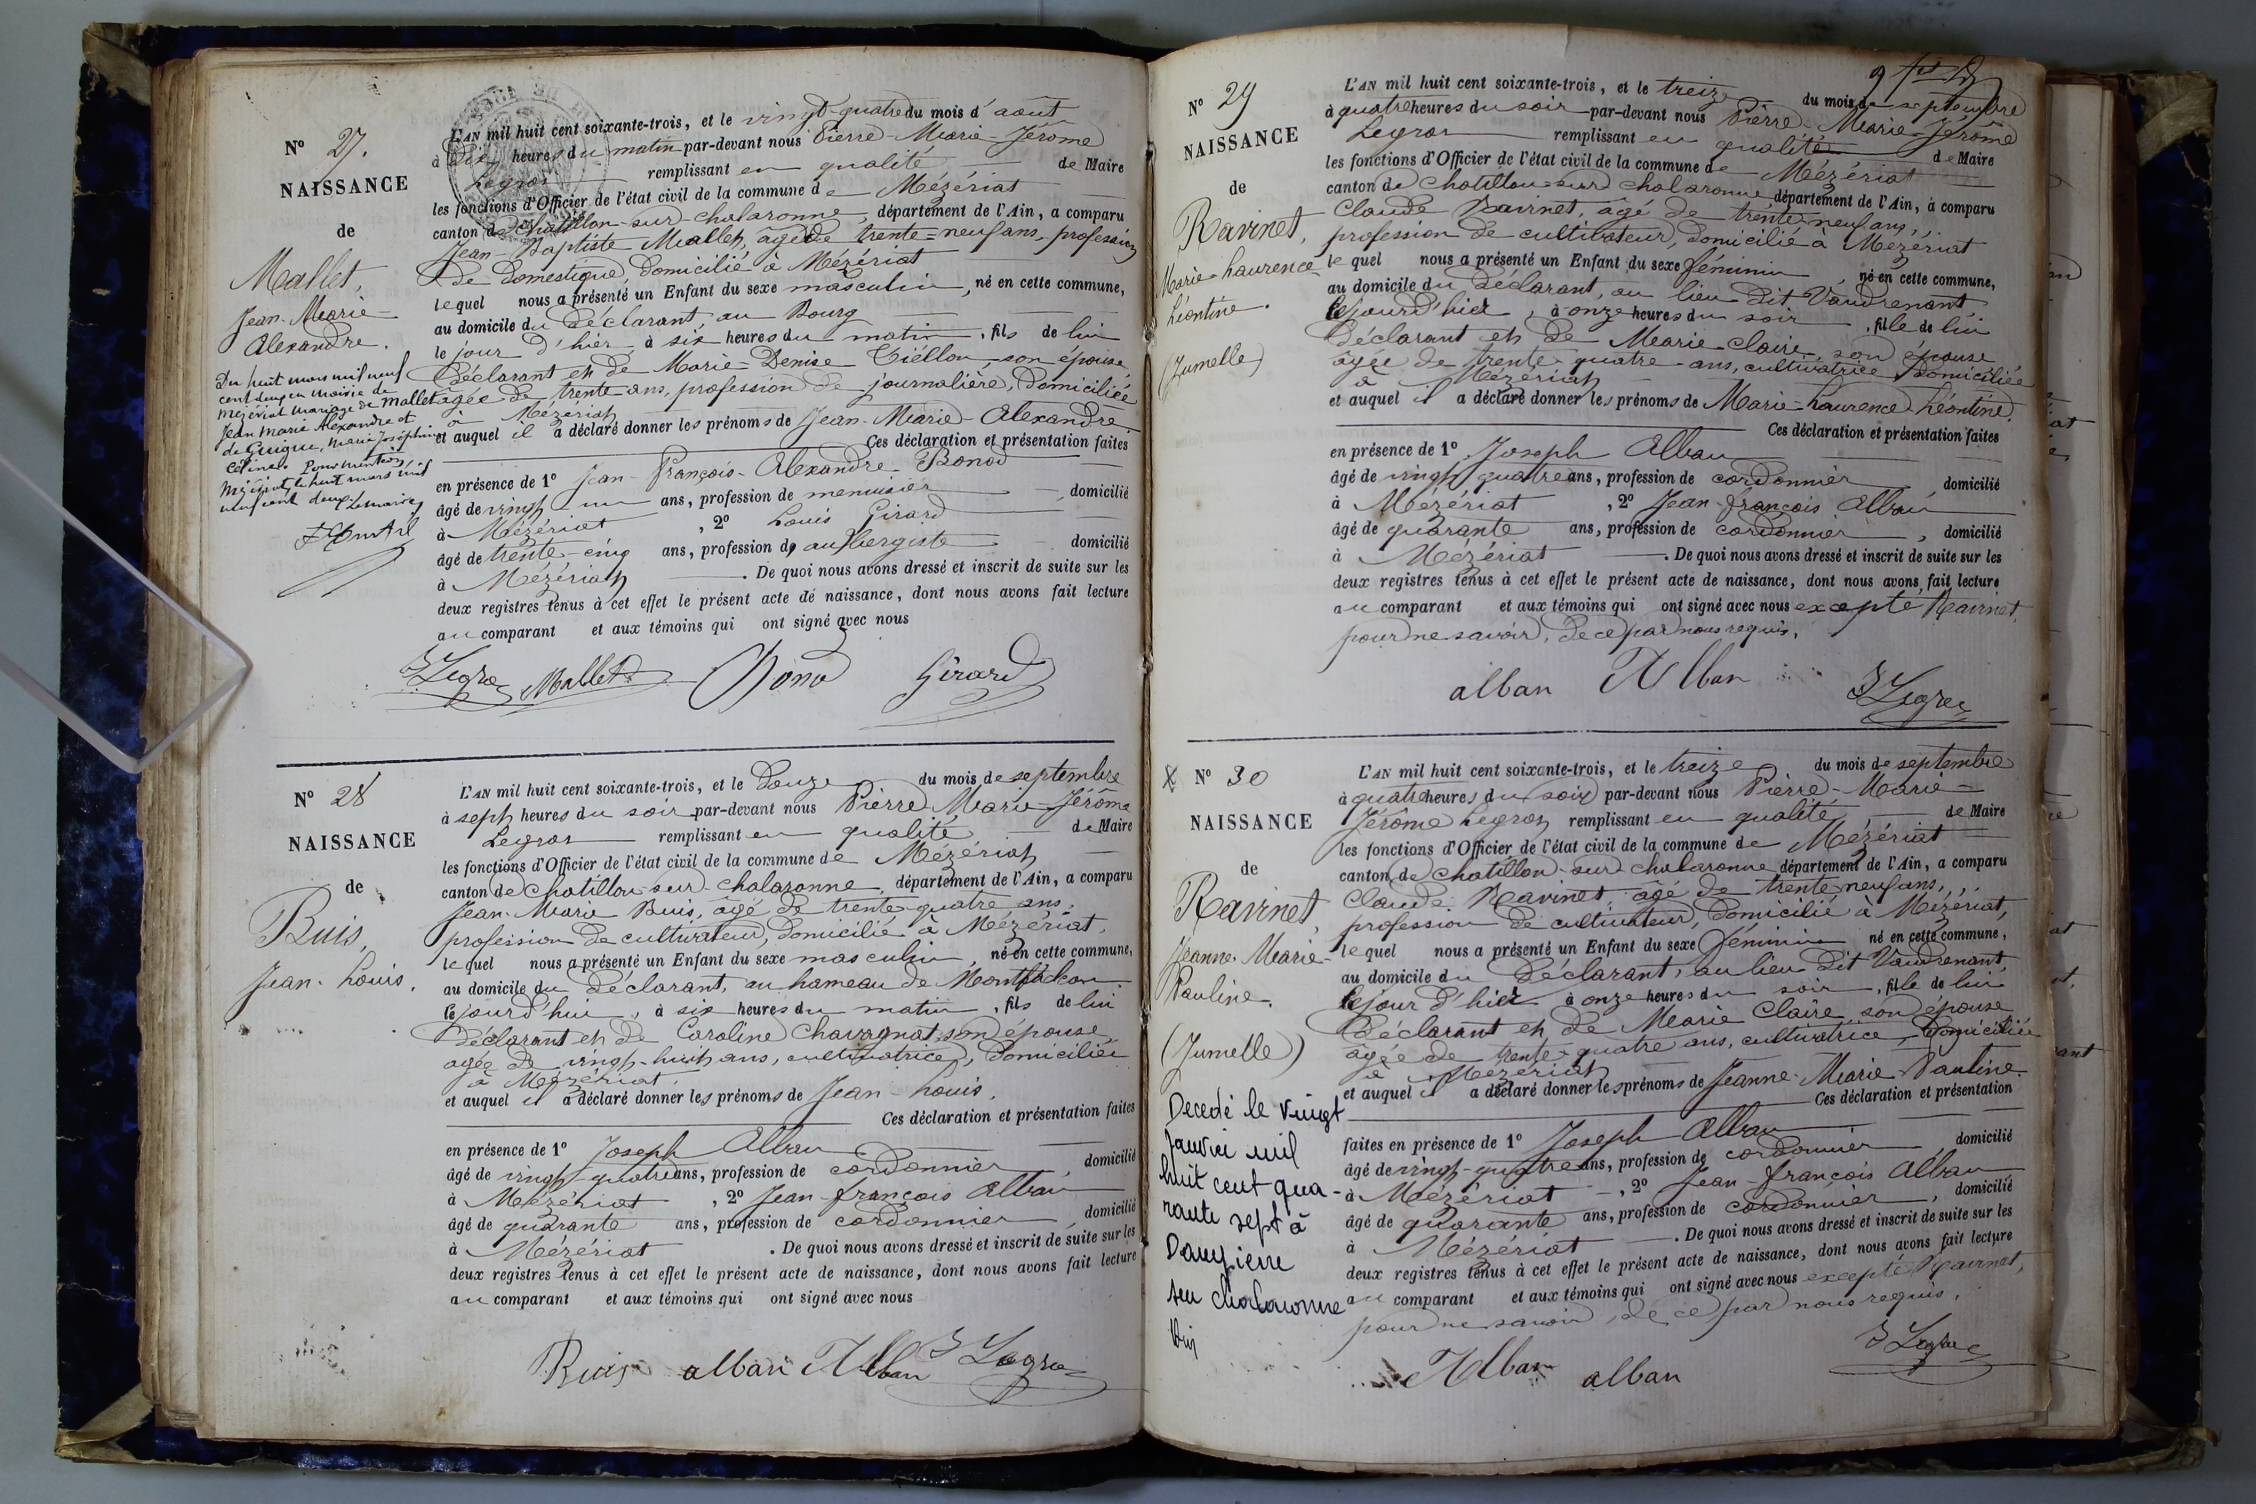 N° 27.
NAISSANCE
de
Mallet,
Jean-Marie-
Alexandre.
Du huit mars mil neuf
cent deux en mairie de
Mézériat mariage de Mallet
Jean Marie Alexandre et
de Guigue, Marie Joséphine
Céline. Pour mention
Mézériat, le huit mars mil
neuf cent deux. Le maire,
L'AN mil huit cent soixante-trois, et le vingt-quatre du mois d'août
à dix heures du matin par-devant nous Pierre-Marie-Jérome
Legros remplissant en qualité de Maire
les fonctions d'Officier de l'état civil de la commune de Mézériat
canton de Chatillon-sur-chalaronne, département de l'Ain, a comparu
Jean-Baptiste Mallet, âgé de trente-neuf ans, profession
de domestique, domicilié à Mézériat
lequel nous a présenté un Enfant du sexe masculin, né en cette commune,
au domicile du déclarant, au Bourg
le jour d'hier, à six heures du matin, fils de lui
déclarant et de Marie-Denise son épouse,
agée de trente ans, profession de journalière, domiciliée
à Mézériat
et auquel il a déclaré donner les prénoms de Jean-Marie-Alexandre.
Ces déclaration et présentation faites
en présence de 1° Jean-François-Alexandre Bonod
âgé de vingt un ans, profession de menuisier, domicilié
à Mézériat, 2° Louis Girard
âgé de trente-cinq ans, profession d'aubergiste domicilié
à Mézériat. De quoi nous avons dressé et inscrit de suite sur les
deux registres tenus à cet effet le présent acte de naissance, dont nous avons fait lecture
au comparant et aux témoins qui ont signé avec nous
J Legros Mallet Bono Girard
N° 28
NAISSANCE
de
Buis,
Jean-Louis.
L'AN mil huit cent soixante-trois, et le douze du mois de septembre
à sept heures du soir par-devant nous Pierre Marie-Jérôme
Legros remplissant en qualité de Maire
les fonctions d'Officier de l'état civil de la commune de Mézériat
canton de Chatillon-sur-chalaronne, département de l'Ain, a comparu
Jean-Marie Buis, âgé de trente-quatre ans,
profession de cultivateur, domicilié à Mézériat,
lequel nous a présenté un Enfant du sexe masculin, né en cette commune,
au domicile du déclarant, au hameau de Montfalcon
cejourd'hui, à six heures du matin, fils de lui
déclarant et de Caroline Chavagnat, son épouse,
agée de vingt-huit ans, cultivatrice, domiciliée
à Mézériat,
et auquel il a déclaré donner les prénoms de Jean-Louis.
Ces déclaration et présentation faites
en présence de 1° Joseph Alban
âgé de vingt-quatre ans, profession de cordonnier, domicilié
à Mézériat, 2° Jean-françois Alban
âgé de quarante ans, profession de cordonnier, domicilié
à Mézériat. De quoi nous avons dressé et inscrit de suite sur les
deux registres tenus à cet effet le présent acte de naissance, dont nous avons fait lecture
au comparant et aux témoins qui ont signé avec nous
Buis alban Alban J Legros
N° 29
NAISSANCE
de
Ravinet,
Marie-Laurence-
Léontine.
(Jumelle)
L'AN mil huit cent soixante-trois, et le treize du mois de septembre
à quatre heures du soir par-devant nous Pierre-Marie-Jérôme
Legros remplissant en qualité de Maire
les fonctions d'Officier de l'état civil de la commune de Mézériat
canton de Chatillon-sur-chalaronne département de l'Ain, a comparu
Claude Ravinet, âgé de trente-neuf ans,
profession de cultivateur, domicilié à Mézériat
lequel nous a présenté un Enfant du sexe féminin, né en cette commune,
au domicile du déclarant, au lieu dit Vaudrenant,
le jour d'hier, à onze heures du soir, fille de lui
déclarant et de Marie-Claire, son épouse
âgée de trente-quatre-ans, cultivatrice, domiciliée
à Mézériat
et auquel il a déclaré donner les prénoms de Marie-Laurence-Léontine.
Ces déclaration et présentation faites
en présence de 1° Joseph Alban
âgé de vingt quatre ans, profession de cordonnier, domicilié
à Mézériat, 2° Jean-françois Alban
âgé de quarante ans, profession de cordonnier, domicilié
à Mézériat. De quoi nous avons dressé et inscrit de suite sur les
deux registres tenus à cet effet le présent acte de naissance, dont nous avons fait lecture
au comparant et aux témoins qui ont signé avec nous excepté Ravinet,
pour ne savoir, de ce par nous requis,
alban Alban J Legros
N° 30
NAISSANCE
de
Ravinet,
Jeanne-Marie-
Pauline.
(Jumelle)
Decedé le vingt
Janvier mil
huit cent qua-
rante sept à
Dampierre
sur chalaronne
L'AN mil huit cent soixante-trois, et le treize du mois de septembre
à quatre heures du soir par-devant nous Pierre-Marie-
Jérôme Legros, remplissant en qualité de Maire
les fonctions d'Officier de l'état civil de la commune de Mézériat
canton de Chatillon-sur-chalaronne département de l'Ain, a comparu
Claude Ravinet, âgé de trente neuf ans,
profession de cultivateur, domicilié à Mézériat,
lequel nous a présenté un Enfant du sexe féminin né en cette commune,
au domicile du déclarant, au lieu dit Vaudrenant,
le jour d'hier à onze heures du soir, fille de lui
déclarant et de Marie Claire son épouse
âgée de trente-quatre ans, cultivatrice, domiciliée
à Mézériat
et auquel il a déclaré donner les prénoms de Jeanne-Marie-Pauline.
Ces déclaration et présentation
faites en présence de 1° Joseph Alban
âgé de vingt-quatre ans, profession de cordonnier, domicilié
à Mézériat, 2° Jean-françois Alban
âgé de quarante ans, profession de cordonnier, domicilié
à Mézériat. De quoi nous avons dressé et inscrit de suite sur les
deux registres tenus à cet effet le présent acte de naissance, dont nous avons fait lecture
au comparant et aux témoins qui ont signé avec nous excepté Ravinet,
pour ne savoir, de ce par nous requis,
Alban alban J Legros